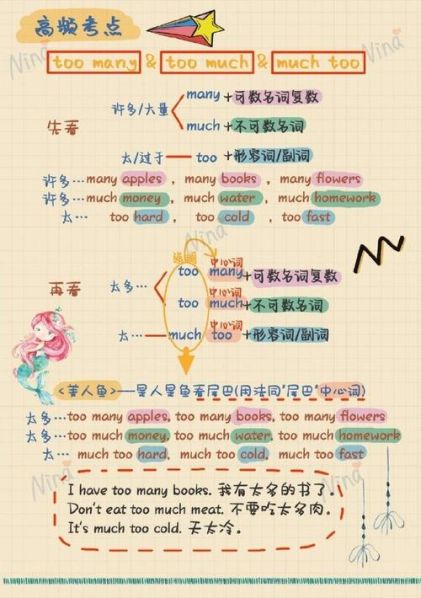 高频考点
Nina
Nina
too many & too much & much too
先看
许多/大量
many+可数名词复数
much+不可数名词
太/过于 — too +形容词/副词
许多… many apples, many books, many flowers
许多… much money, much water, much homework
太… too hard, too cold, too fast
Nina
再看
太多…
中心词
too many+可数名词复数
中心词
too much+不可数名词
中心词
太… much too +形容词/副词
<美人鱼>—是人是鱼看尾巴(用法同"尾巴"中心词)
太多… too many apples, too many books, too many flowers
太多… too much money, too much water, too much homework
太… much too hard, much too cold, much too fast
Nina
Nina
I have too many books. 我有太多的书了.
Don't eat too much meat. 不要吃太多肉.
It's much too cold. 天太冷.